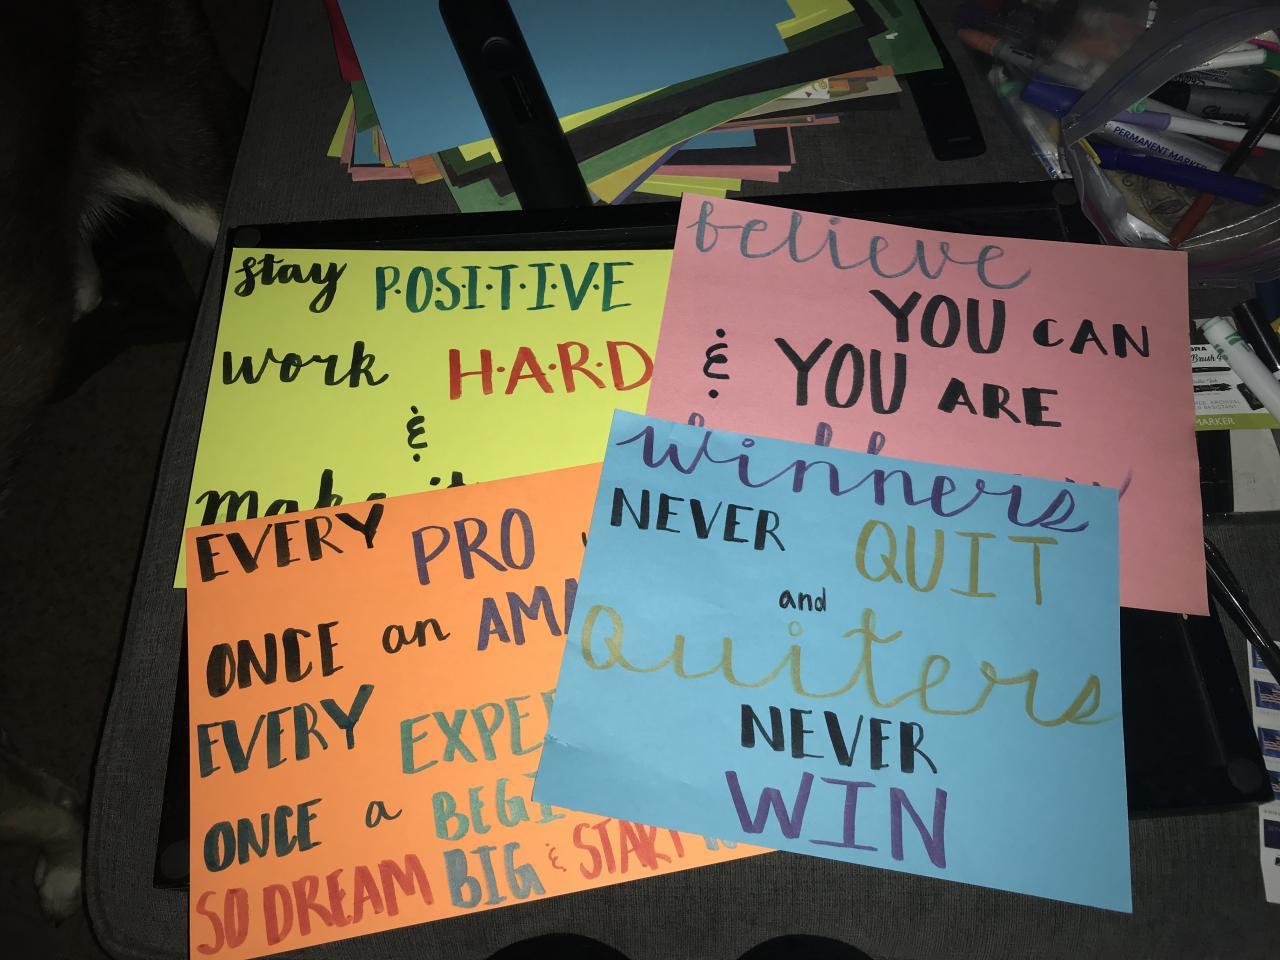 stay P·O·S·I·T·I·V·E
work H·A·R·D
&
make it
believe
YOU CAN
& YOU ARE
EVERY PRO
ONCE an
EVERY
ONCE a
SO DREAM BIG & START
winners
NEVER QUIT
and
Quiters
NEVER
WIN
PERMANENT MARKER
MARKER